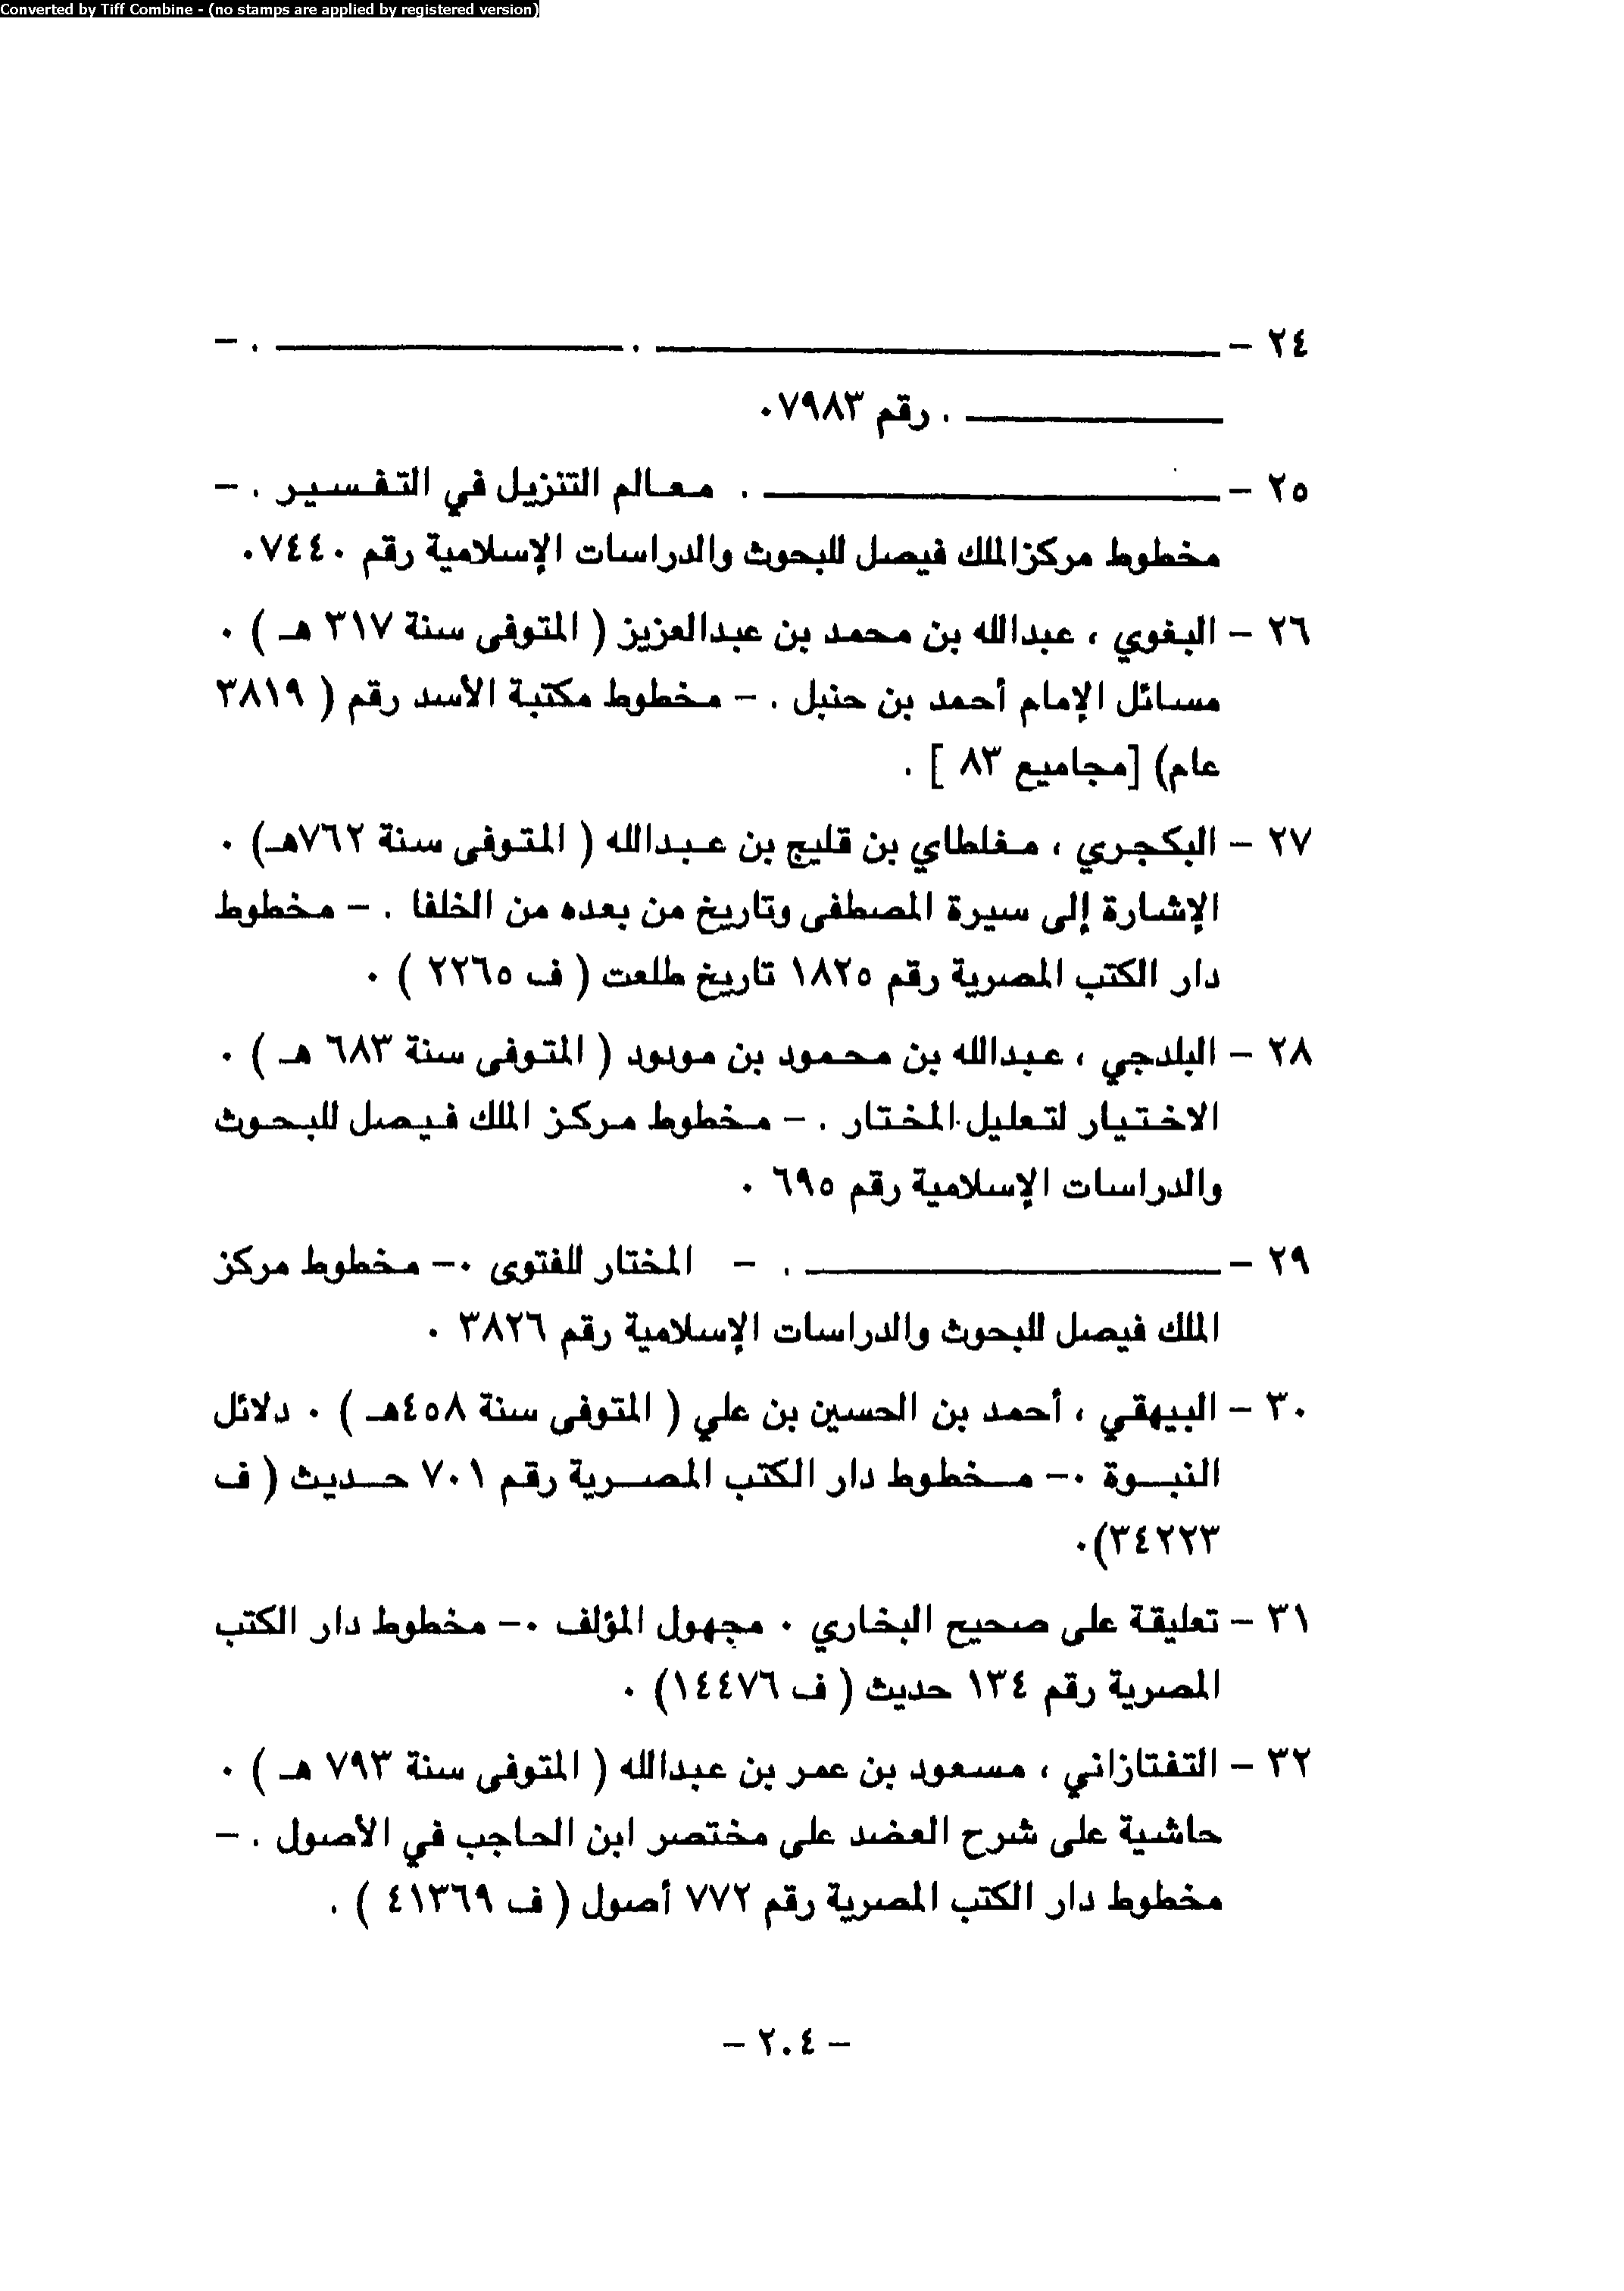 Converted by Tiff Combine - (no stamps are applied by registered version)
٢٤ – ــــــــــــــــ . ــــــــــــــــ . –
ــــــــــــــــ . رقم ٧٩٨٣٠
٢٥ – ــــــــــــــــ . معالم التنزيل في التفسير . –
مخطوط مركزالملك فيصل للبحوث والدراسات الإسلامية رقم ٧٤٤٠٠
٢٦ – البغوي ، عبدالله بن محمد بن عبدالعزيز ( المتوفى سنة ٣١٧ هـ ) ٠
مسائل الإمام أحمد بن حنبل . – مخطوط مكتبة الأسد رقم ( ٣٨١٩
عام) [مجاميع ٨٣ ] .
٢٧ – البكجري ، مغلطاي بن قليج بن عبدالله ( المتوفى سنة ٧٦٢هـ) ٠
الإشارة إلى سيرة المصطفى وتاريخ من بعده من الخلفا . – مخطوط
دار الكتب المصرية رقم ١٨٢٥ تاريخ طلعت ( ف ٢٢٦٥ ) ٠
٢٨ – البلدجي ، عبدالله بن محمود بن مودود ( المتوفى سنة ٦٨٣ هـ ) ٠
الاختيار لتعليل المختار . – مخطوط مركز الملك فيصل للبحوث
والدراسات الإسلامية رقم ٦٩٥ ٠
٢٩ – ــــــــــــــــ . – المختار للفتوى ٠– مخطوط مركز
الملك فيصل للبحوث والدراسات الإسلامية رقم ٣٨٢٦ ٠
٣٠ – البيهقي ، أحمد بن الحسين بن علي ( المتوفى سنة ٤٥٨هـ ) ٠ دلائل
النبوة ٠– مخطوط دار الكتب المصرية رقم ٧٠١ حديث ( ف
٣٤٢٢٣)٠
٣١ – تعليقة على صحيح البخاري ٠ مجهول المؤلف ٠– مخطوط دار الكتب
المصرية رقم ١٣٤ حديث ( ف ١٤٤٧٦) ٠
٣٢ – التفتازاني ، مسعود بن عمر بن عبدالله ( المتوفى سنة ٧٩٣ هـ ) ٠
حاشية على شرح العضد على مختصر ابن الحاجب في الأصول . –
مخطوط دار الكتب المصرية رقم ٧٧٢ أصول ( ف ٤١٣٦٩ ) .
– ٢٠٤ –